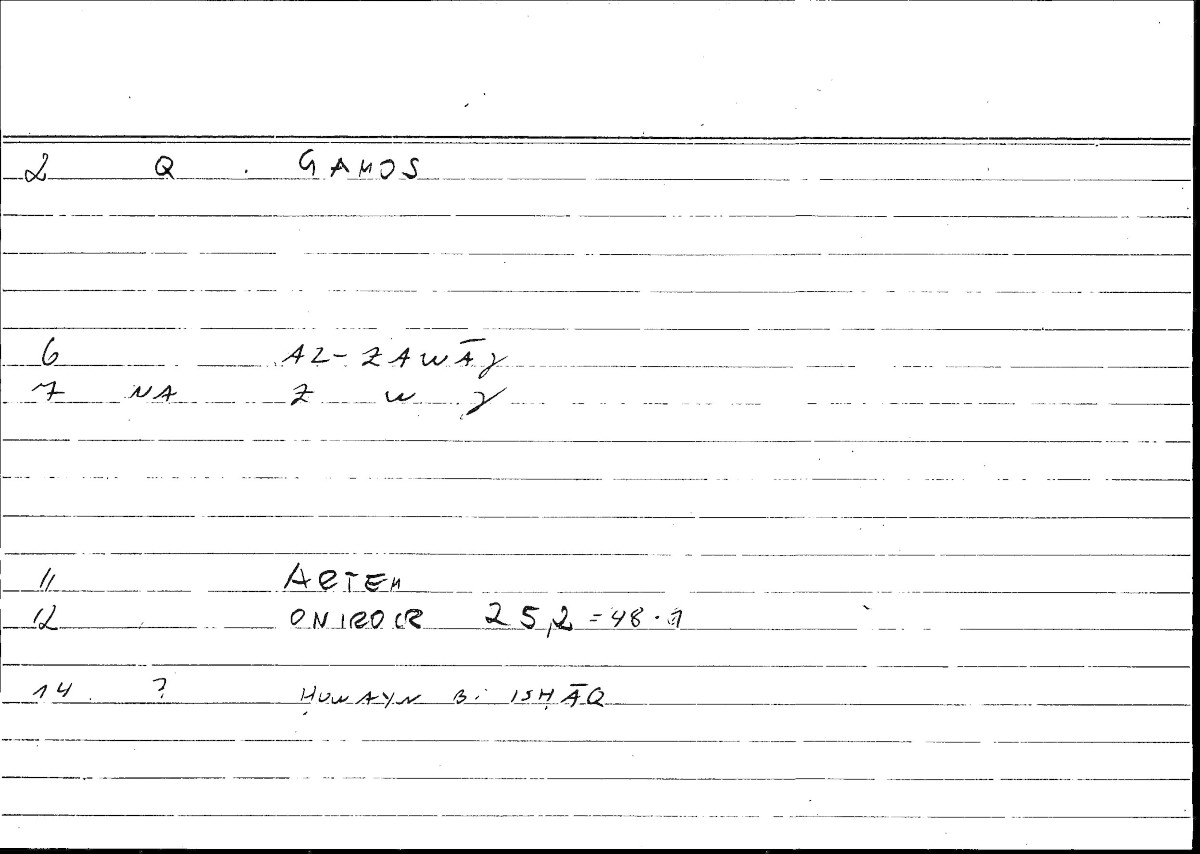 2 Q . GAMOS
6 AZ-ZAWĀǧ
7 NA Z W ǧ
11 ARTEM
12 ONIROCR 25,2 = 48.9
14. ? ḤUNAYN B. ISḤĀQ